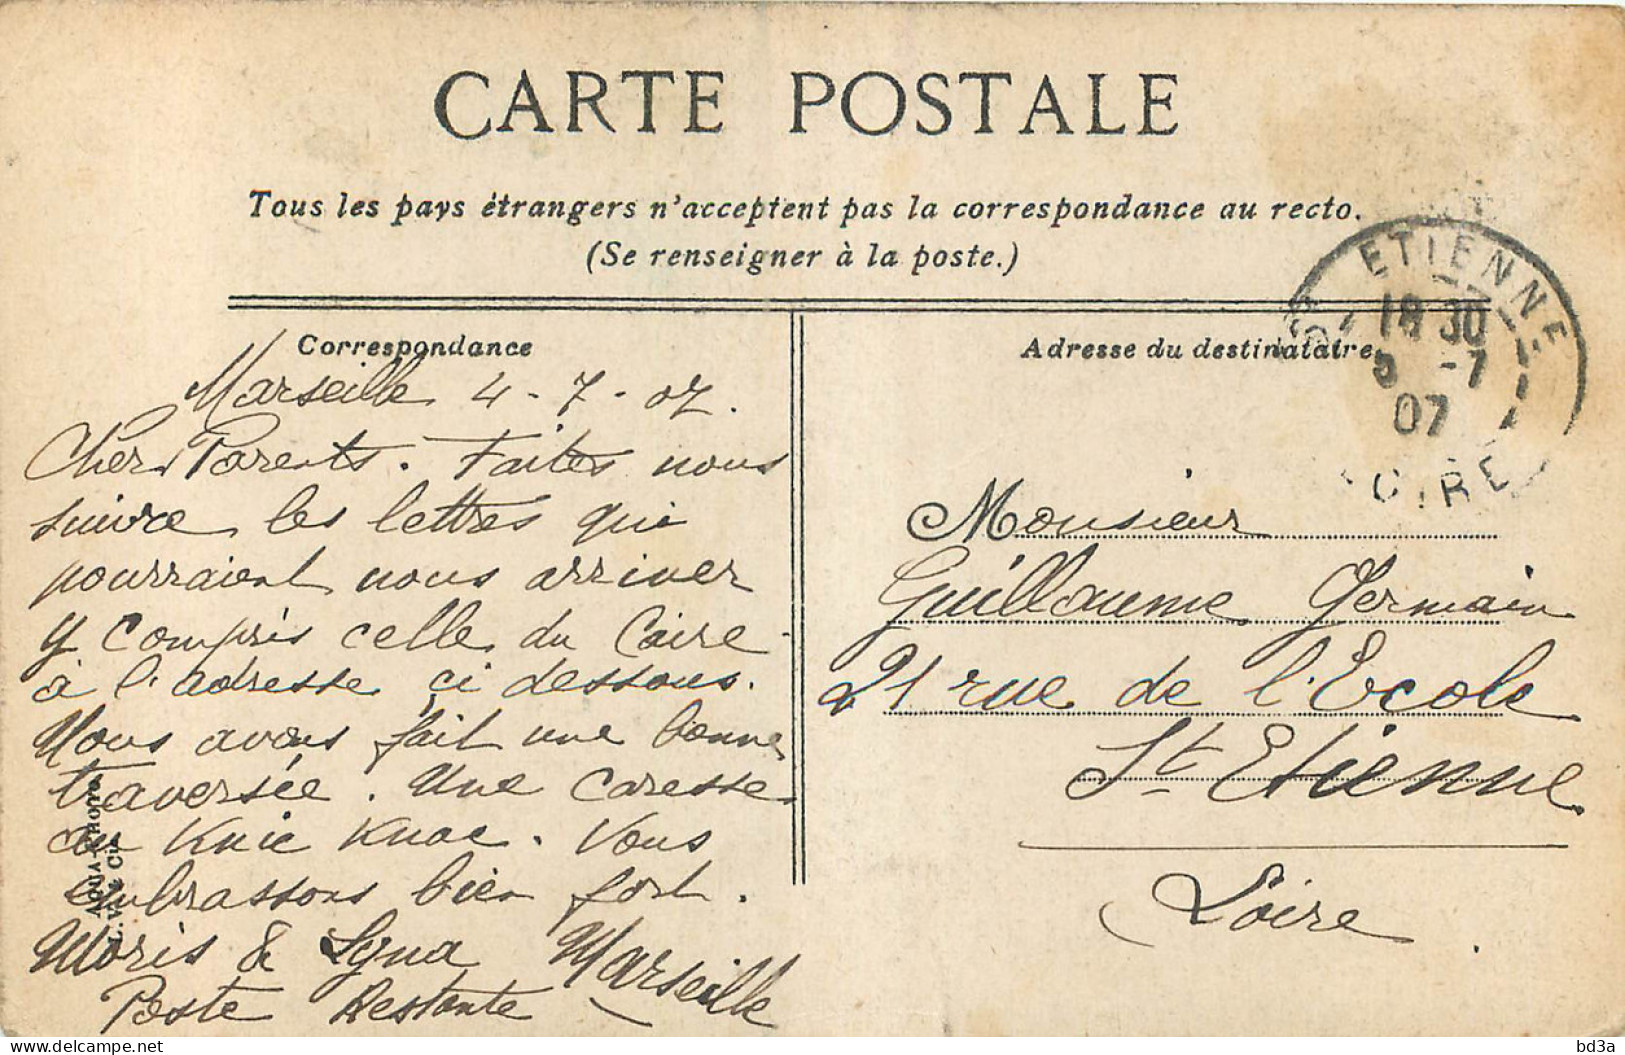 CARTE POSTALE
Tous les pays étrangers n'acceptent pas la correspondance au recto.
(Se renseigner à la poste.)
Correspondance
Marseille 4-7-07.
Chers Parents. Faites nous
suivre les lettres qui
pourraient nous arriver
y compris celle du Caire
à l'adresse çi dessous.
Nous avons fait une bonne
traversée. Une caresse
au Knic Knac. Vous
embrassons bien fort.
Moris &
Marseille
Poste Restante
AQUA-PHOTO
Cie
Adresse du destinataire
ETIENNE
18 30
5 -7
07
LOIRE
Monsieur
Guillaume Germain
21 rue de l'Ecole
St Etienne
Loire.
bd3a